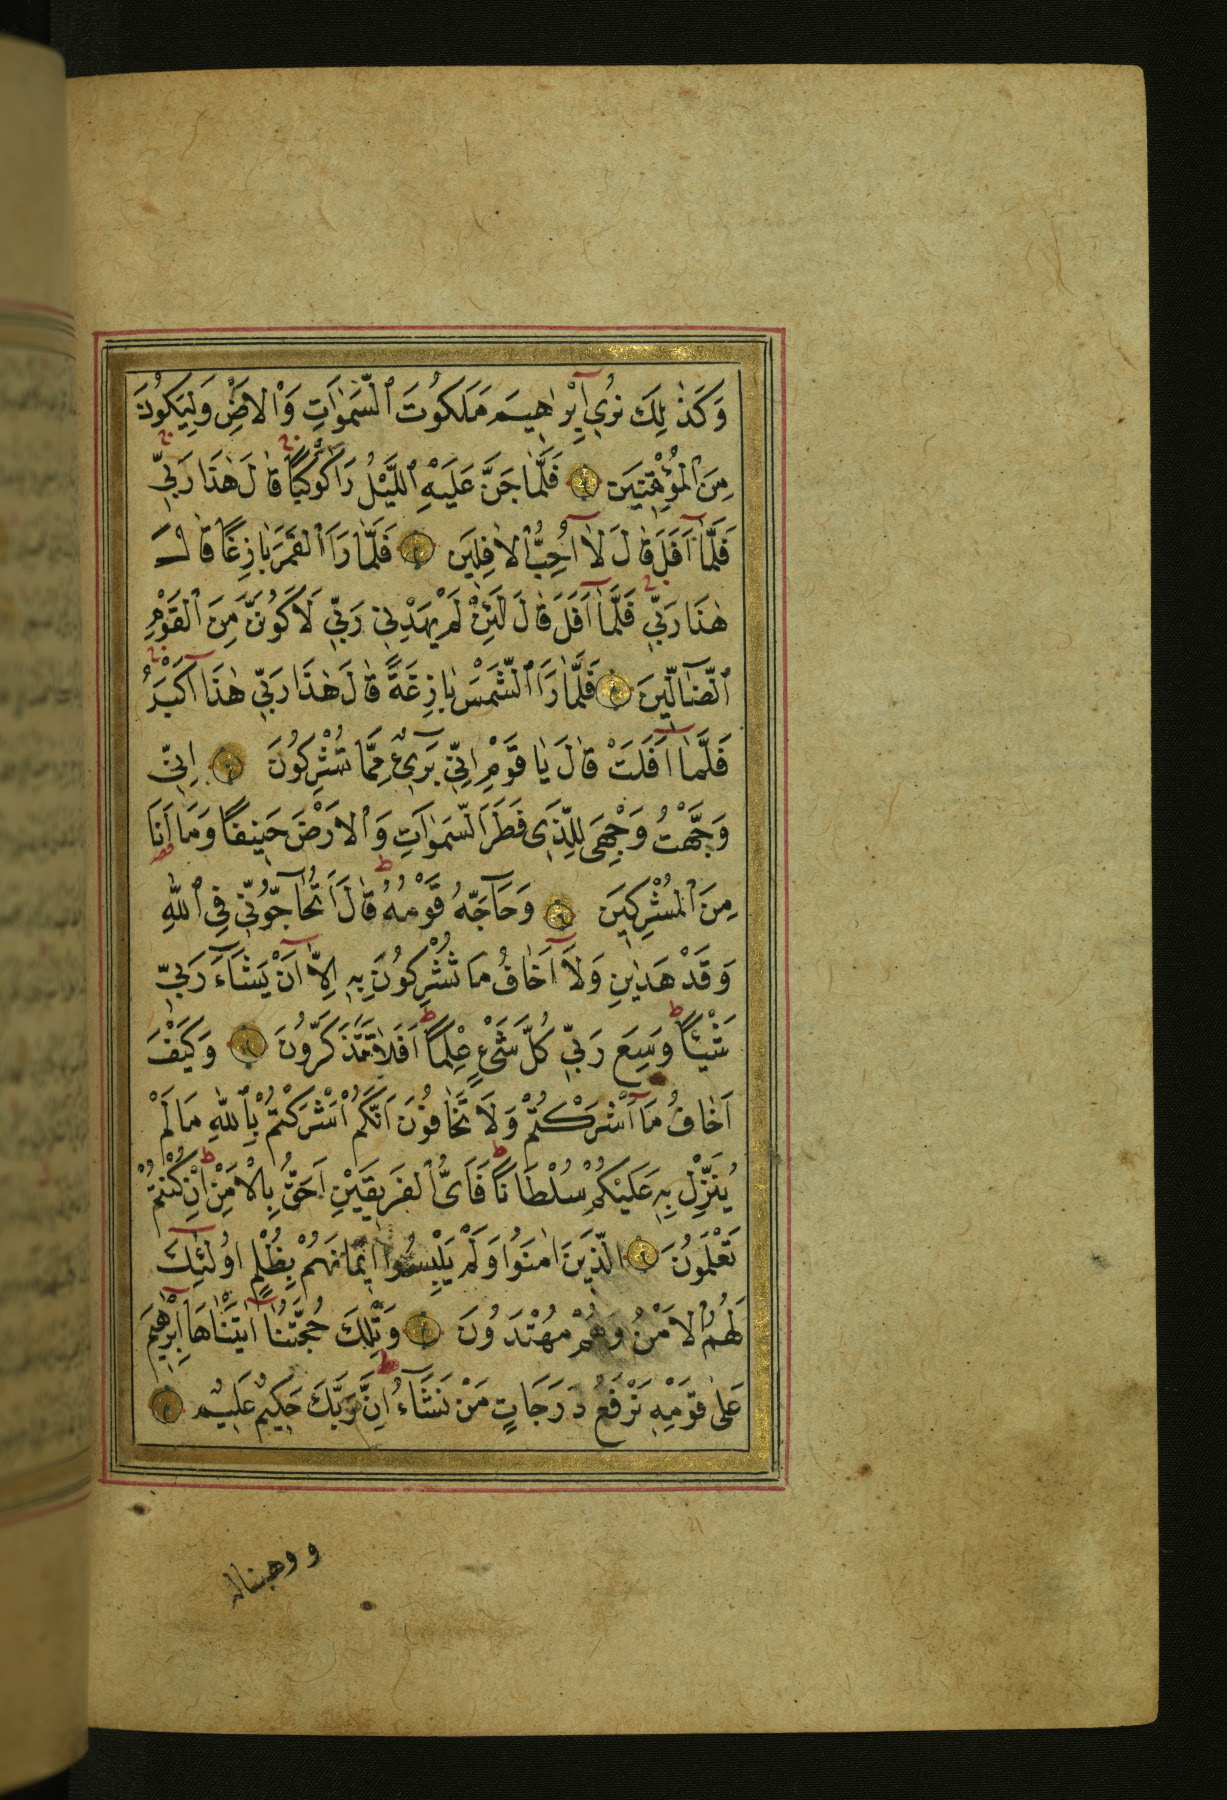 وَكَذٰلِكَ نُرٖي اِبْرٰاهٖيمَ مَلَكُوتَ ٱلسَّمٰوَاتِ وَٱلْاَرْضِ وَلِيَكُونَ
مِنَ ٱلْمُوقِنٖينَ فَلَمَّا جَنَّ عَلَيْهِ ٱللَّيْلُ رَاٰ كَوْكَبًا قَالَ هٰذَا رَبّٖي
فَلَمَّا اَفَلَ قَالَ لَا اُحِبُّ ٱلْاٰفِلٖينَ فَلَمَّا رَاَ ٱلْقَمَرَ بَازِغًا قَالَ
هٰذَا رَبّٖي فَلَمَّا اَفَلَ قَالَ لَئِنْ لَمْ يَهْدِنٖي رَبّٖي لَاَكُونَنَّ مِنَ ٱلْقَوْمِ
ٱلضَّالّٖينَ فَلَمَّا رَاَ ٱلشَّمْسَ بَازِغَةً قَالَ هٰذَا رَبّٖي هٰذَا اَكْبَرُ
فَلَمَّا اَفَلَتْ قَالَ يَا قَوْمِ اِنّٖي بَرٖيءٌ مِمَّا تُشْرِكُونَ اِنّٖي
وَجَّهْتُ وَجْهِيَ لِلَّذٖي فَطَرَ ٱلسَّمٰوَاتِ وَٱلْاَرْضَ حَنٖيفًا وَمَا اَنَا
مِنَ ٱلْمُشْرِكٖينَ وَحَاجَّهُ قَوْمُهُ قَالَ اَتُحَاجُّونّٖي فِي ٱللّٰهِ
وَقَدْ هَدٰينِ وَلَا اَخَافُ مَا تُشْرِكُونَ بِهٖ اِلَّا اَنْ يَشَاءَ رَبّٖي
شَيْئًا وَسِعَ رَبّٖي كُلَّ شَيْءٍ عِلْمًا اَفَلَا تَتَذَكَّرُونَ وَكَيْفَ
اَخَافُ مَا اَشْرَكْتُمْ وَلَا تَخَافُونَ اَنَّكُمْ اَشْرَكْتُمْ بِٱللّٰهِ مَا لَمْ
يُنَزِّلْ بِهٖ عَلَيْكُمْ سُلْطَانًا فَاَيُّ ٱلْفَرٖيقَيْنِ اَحَقُّ بِالْاَمْنِ اِنْ كُنْتُمْ
تَعْلَمُونَ الَّذٖينَ اٰمَنُوا وَلَمْ يَلْبِسُوا اٖيمَانَهُمْ بِظُلْمٍ اُولٰئِكَ
لَهُمُ ٱلْاَمْنُ وَهُمْ مُهْتَدُونَ وَتِلْكَ حُجَّتُنَا اٰتَيْنَاهَا اِبْرٰهٖيمَ
عَلٰى قَوْمِهٖ نَرْفَعُ دَرَجَاتٍ مَنْ نَشَاءُ اِنَّ رَبَّكَ حَكٖيمٌ عَلٖيمٌ
و ووهبناله